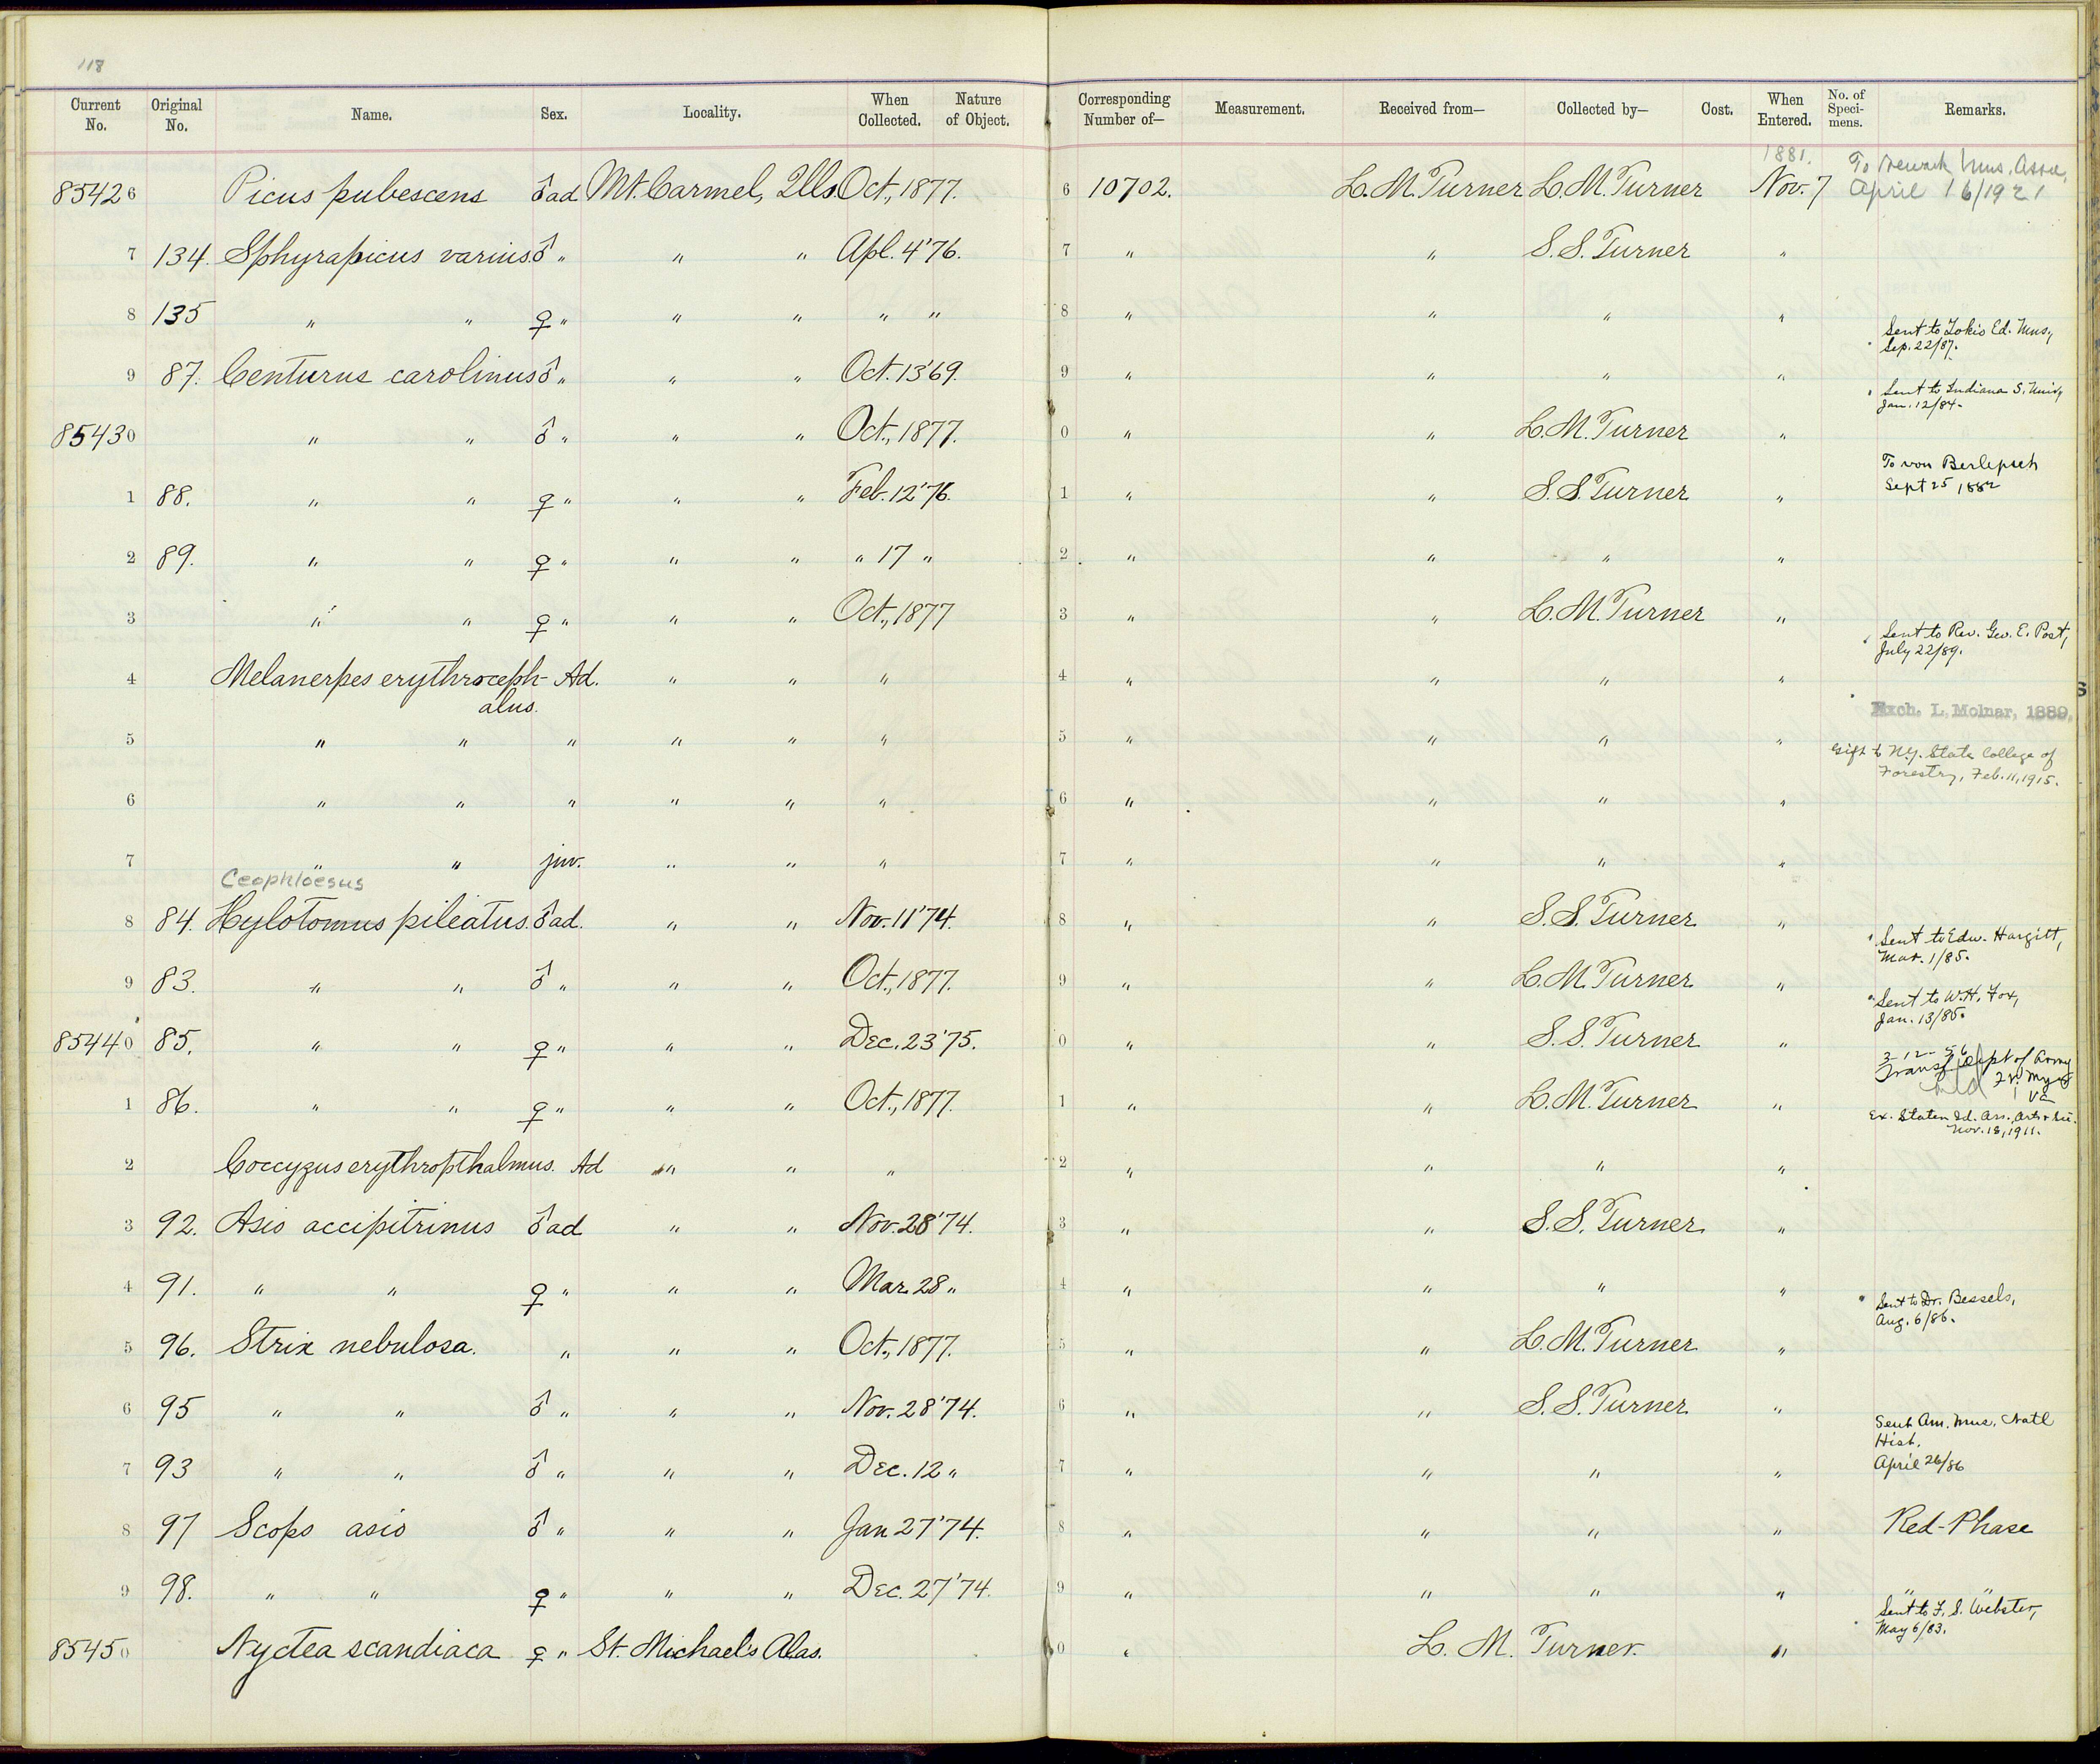 118
Current No. Original No. Name. Sex. Locality. When Collected. Nature of Object. Corresponding Number of— Measurement. Received from— Collected by— Cost. When Entered. No. of Speci-mens. Remarks.
1881.
85426 Picus pubescens ♂ ad Mt. Carmel, Ills. Oct., 1877. 6 10702. L. M. Turner L. M. Turner Nov. 7 To Newark Mus. Assoc. April 16/1921
7 134. Sphyrapicus varius. ♂ " " " Apl. 4 '76. 7 " " S. S. Turner "
8 135 " " ♀ " " " " " 8 " " " "
Sent to Tokio Ed. Mus., Sep. 22/87.
9 87. Centurus carolinus ♂ " " " Oct. 13 '69. 9 " " " "
Sent to Indiana S. Univ, Jan. 12/84.
85430 " " ♂ " " " Oct., 1877. 0 " " L. M. Turner "
To von Berlepsch Sept 25 1882
1 88. " " ♀ " " " Feb. 12 '76. 1 " " S. S. Turner "
2 89. " " ♀ " " " " 17 " 2 " " " "
3 " " ♀ " " " Oct., 1877 3 " " L. M. Turner "
Sent to Rev. Geo. E. Post, July 22/89.
4 Melanerpes erythroceph- Ad. " " " 4 " " " "
alus.
Exch. L. Molnar, 1889.
5 " " " " " " 5 " " " "
Gift to N.Y. State College of Forestry, Feb. 11, 1915.
6 " " " " " " 6 " " " "
7 " " juv. " " " 7 " " " "
Ceophlöesus
8 84. Hylotomus pileatus. ♂ ad. " " Nov. 11 '74. 8 " " S. S. Turner "
Sent to Edw. Hargitt, Mar. 1/85.
9 83. " " ♂ " " " Oct., 1877. 9 " " L. M. Turner "
Sent to W. H. Fox, Jan. 13/85.
85440 85. " " ♀ " " " Dec. 23 '75. 0 " " S. S. Turner "
3-12-56 Transf Dept of Army Ft. Myer Va
1 86. " " ♀ " " " Oct., 1877. 1 " " L. M. Turner "
Ex. Staten Id. Ass. Arts & Sci. Nov. 18, 1911.
2 Coccyzus erythropthalmus. Ad " " " 2 " " " "
3 92. Asio accipitrinus ♂ ad " " Nov. 28 '74. 3 " " S. S. Turner "
4 91. " " ♀ " " " Mar. 28 " 4 " " " "
Sent to Dr. Bessels, Aug. 6/86.
5 96. Strix nebulosa. " " " Oct., 1877. 5 " " L. M. Turner "
6 95 " " ♂ " " " Nov. 28 '74. 6 " " S. S. Turner "
Sent Am. Mus. Natl Hist. April 26/86
7 93 " " ♂ " " " Dec. 12 " 7 " " " "
8 97 Scops asio ♂ " " " Jan 27 '74. 8 " " " " Red-Phase
9 98. " " ♀ " " " Dec. 27 '74. 9 " " " " "
Sent to F. S. Webster, May 6/83.
85450 Nyctea scandiaca ♀ " St. Michael's Alas. 0 " L. M. Turner. "